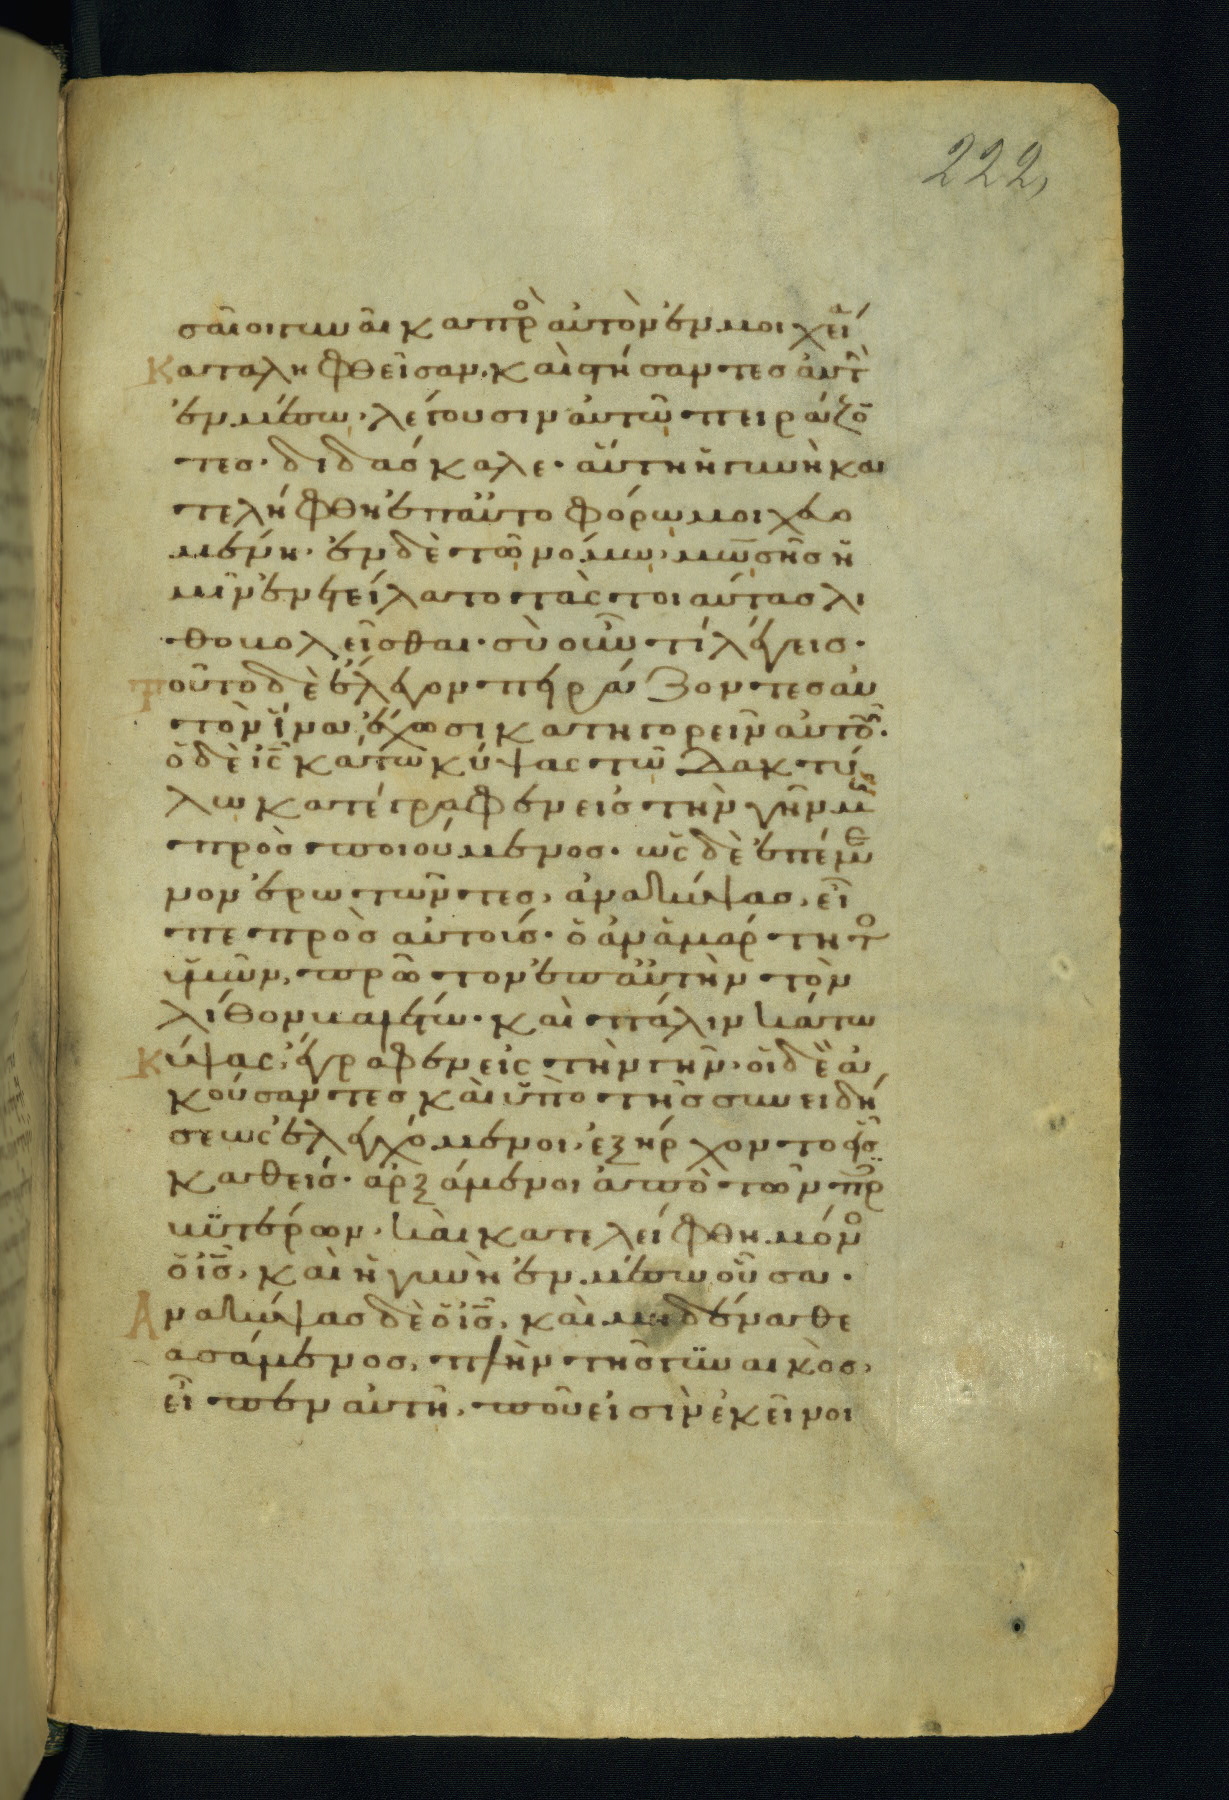 222,
σαῖοι γυναῖκα πρὸ αὐτὸν ἐν μοιχεί
Καταληφθεῖσαν. καὶ στήσαντες αὐτὴ
ἐν μέσω. λέγουσιν αὐτῶ πειράζο̄
τες. διδάσκαλε. αὕτη ἡ γυνὴ κα
τελήφθη ἐπαὐτοφόρω μοιχευο
μένη. ἐν δὲ τῶ νόμω. μω̄σῆς ἡ
μῖν ἐνετείλατο τὰς τοιαύτας λι
θοβολεῖσθαι. σὺ οὖν τί λέγεις.
Τοῦτο δὲ ἔλεγον πειράζοντες αὐ
τὸν ἵνα ἔχωσι κατηγορεῖν αὐτοῦ.
ὁ δὲ ι̅ς̅ κάτω κύψας τῶ δακτύ
λω κατέγραφεν εἰς τὴν γῆν μὴ
προσποιούμενος. ὡς δὲ ἐπέμε
νον ἐρωτῶντες, ἀνακύψας, εἶ
πε πρὸς αὐτούς. ὁ ἀναμάρτητο
ὑμῶν, πρῶτον ἐπ αὐτὴν τὸν
λίθον βαλέτω. καὶ πάλιν κάτω
Κύψας, ἔγραφεν εἰς τὴν γῆν. οἱ δὲ ἀ
κούσαντες καὶ ὑπὸ τῆς συνειδή
σεως ἐλεγχόμενοι, ἐξήρχοντο εἷς
καθεις. ἀρξάμενοι ἀπὸ τῶν πρ
σβϋτέρων. καὶ κατελείφθη μόνο
ὁ ι̅ς̅, καὶ ἡ γυνὴ ἐν μέσω οὖσα.
Ανακύψας δὲ ὁ ι̅ς̅, καὶ μηδένα θε
ασάμενος, πλὴν τῆς γϋναικὸς,
εἶπεν αὐτῆ, ποῦ εἰσὶν ἐκεῖνοι